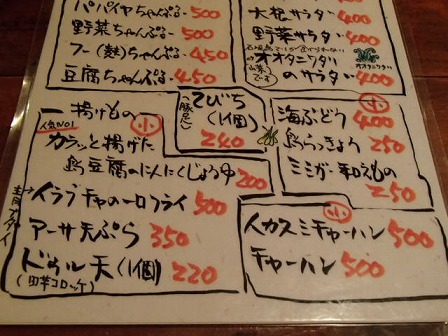 パパイヤちゃんぷるー 500
野菜ちゃんぷるー 500
フー(麩)ちゃんぷるー 450
豆腐ちゃんぷるー 450
大根サラダ 400
野菜サラダ 400
オオタニワタリ
のサラダ 400
オオタニワタリ
てびち
(豚足)
(1個)
240
一揚げもの 小
人気NO1
カラッと揚げた
島豆腐のにんにくじょうゆ 200
青ブダイ
イラブチャーの一口フライ 500
アーサ天ぷら 350
ドゥル天(1個) 220
(田芋コロッケ)
小
海ぶどう 400
島らっきょう 250
ミミガー和えもの 250
小
イカスミチャーハン 500
チャーハン 500